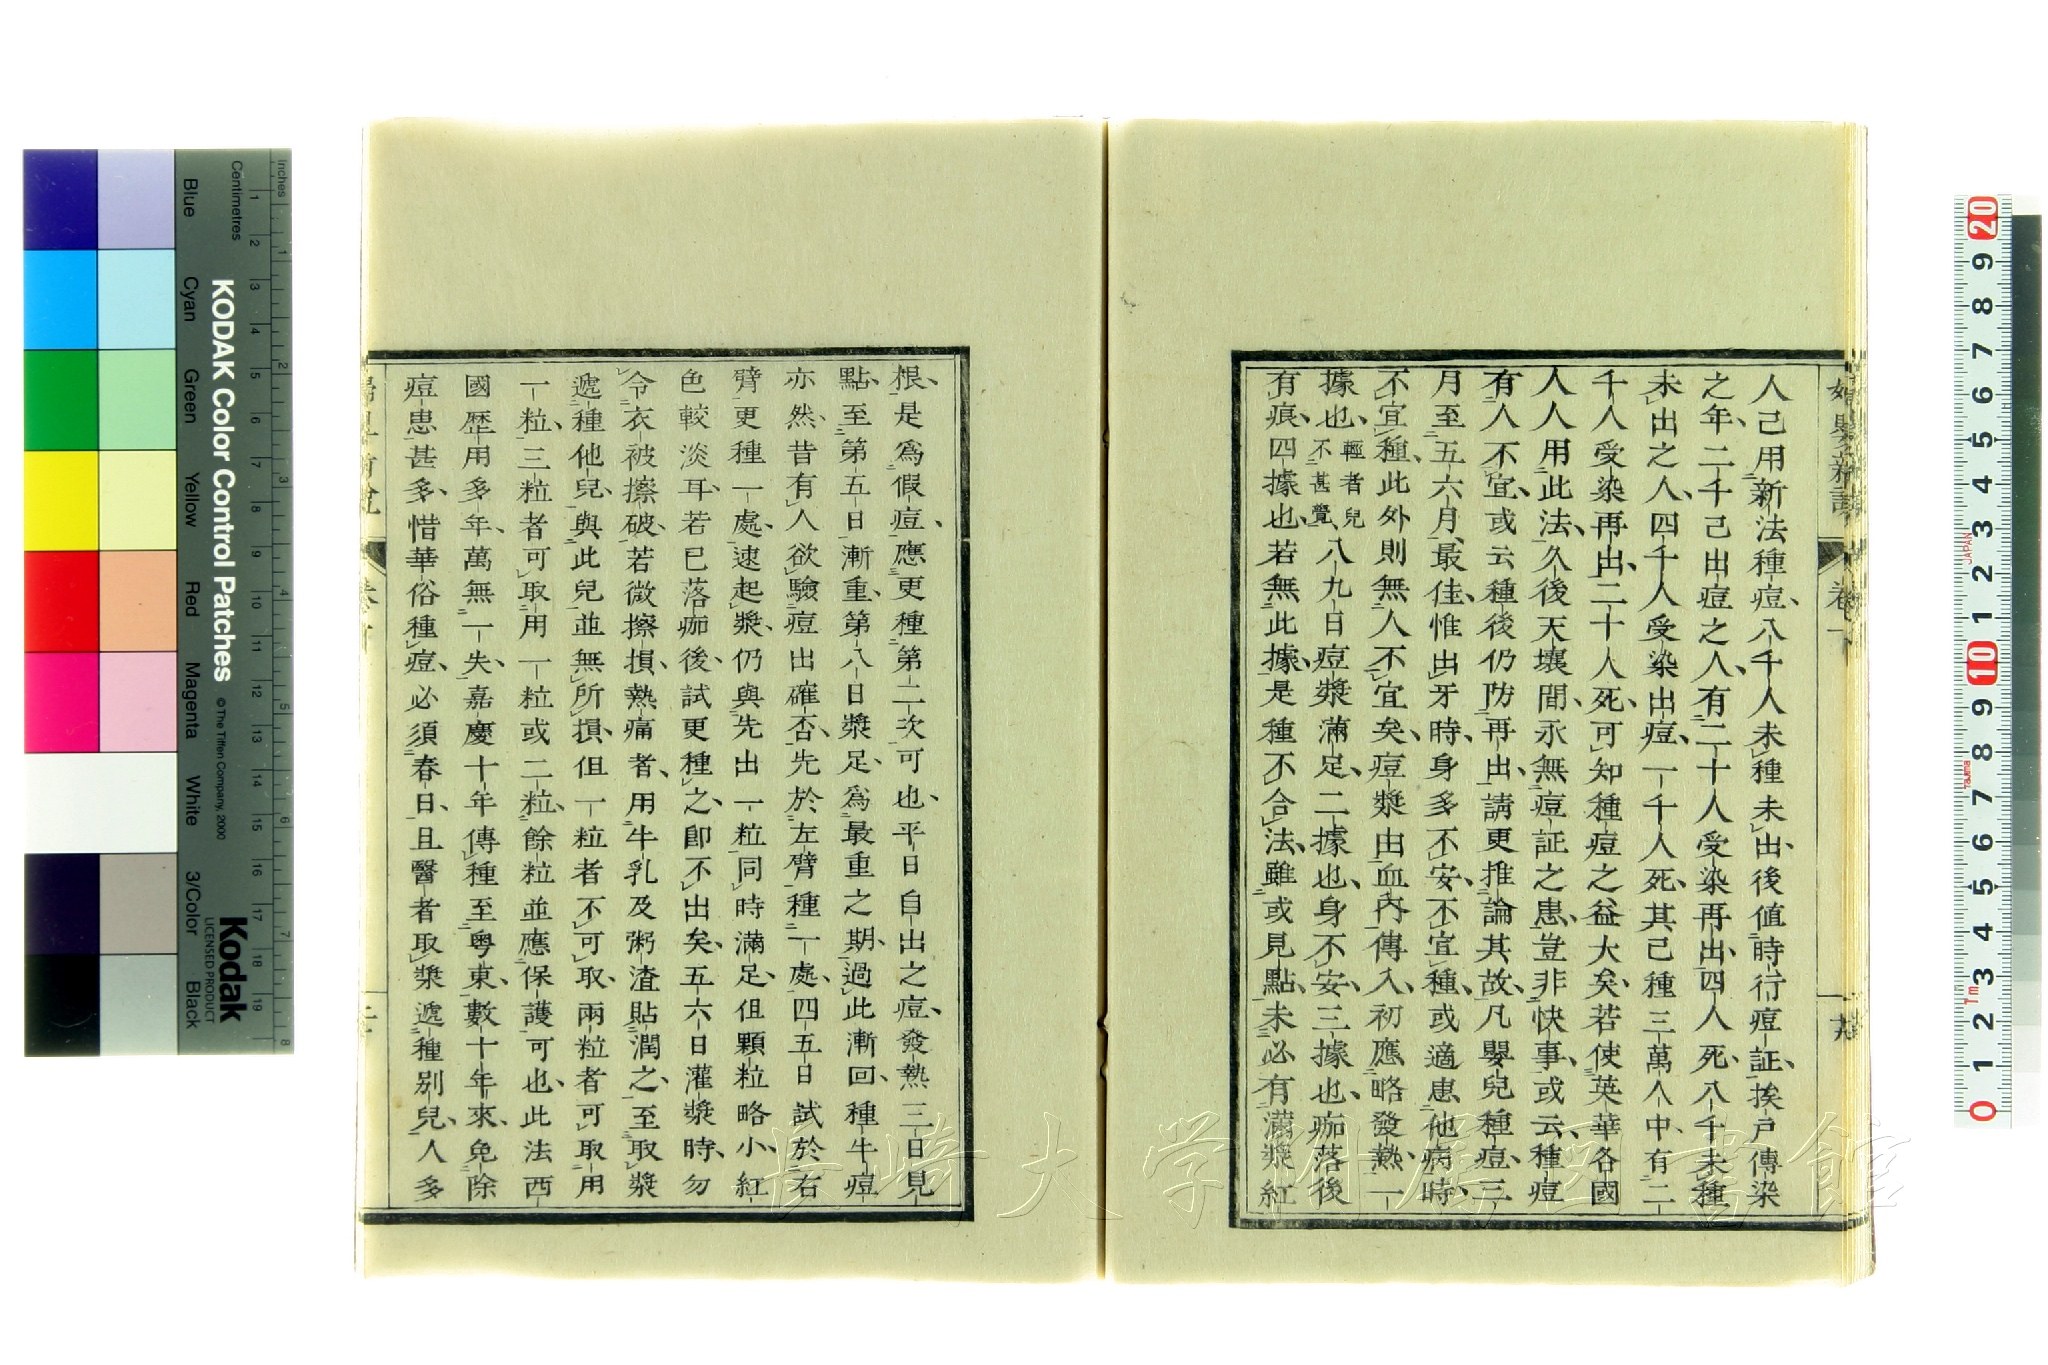 人己用新法種痘、八千人未種未出、後值時行痘証、挨戶傳染
之年、二千己出痘之人、有二十人受染再出、四人死、八千未種
未出之人、四千人受染出痘、一千人死、其己種三萬人中有二
千人受染再出、二十人死、可知種痘之益大矣、若使英華各國
人人用此法、久後天壤間、永無痘証之患、豈非快事、或云、種痘
有人不宜、或云種後仍防再出、請更推論其故、凡嬰兒種痘、三
月至五六月、最佳、惟出牙時、身多不安、不宜種、或適患他病時、
不宜種、此外則無人不宜矣、痘漿由血內傳入、初應略發熱、一
據也、輕者兒不甚覺、八九日痘漿滿足、二據也、身不安、三據也、痂落後
有痕、四據也、若無此據、是種不合法、雖或見點、未必有滿漿紅
根、是為假痘、應更種第二次可也、平日自出之痘、發熱三日見
點、至第五日漸重、第八日漿足、為最重之期、過此漸回、種牛痘
亦然、昔有人欲驗痘出確否、先於左臂種一處、四五日試於右
臂更種一處、速起漿、仍與先出一粒同時滿足、但顆粒略小、紅
色較淡耳、若已落痂後、試更種之、即不出矣、五六日灌漿時、勿
令衣被擦破、若微擦損、熱痛者、用牛乳及粥渣貼潤之、至取漿
遞種他兒、與此兒並無所損、但一粒者不可取、兩粒者可取用
一粒、三粒者可取用一粒或二粒、餘粒並應保護可也、此法西
國歷用多年、萬無一失、嘉慶十年傳種至粵東、數十年來、免除
痘患甚多、惜華俗種痘、必須春日、且醫者取漿遞種別兒、人多
婦嬰新說
卷下
長崎大学附属図書館
Inches
Centimetres
KODAK Color Control Patches
© The Tiffen Company, 2000
Kodak
LICENSED PRODUCT
Blue
Cyan
Green
Yellow
Red
Magenta
White
3/Color
Black
1 2 3 4 5 6 7 8 9 10 11 12 13 14 15 16 17 18 19
1 2 3 4 5 6 7 8
20 9 8 7 6 5 4 3 2 1 10 9 8 7 6 5 4 3 2 1 0
JAPAN
7m